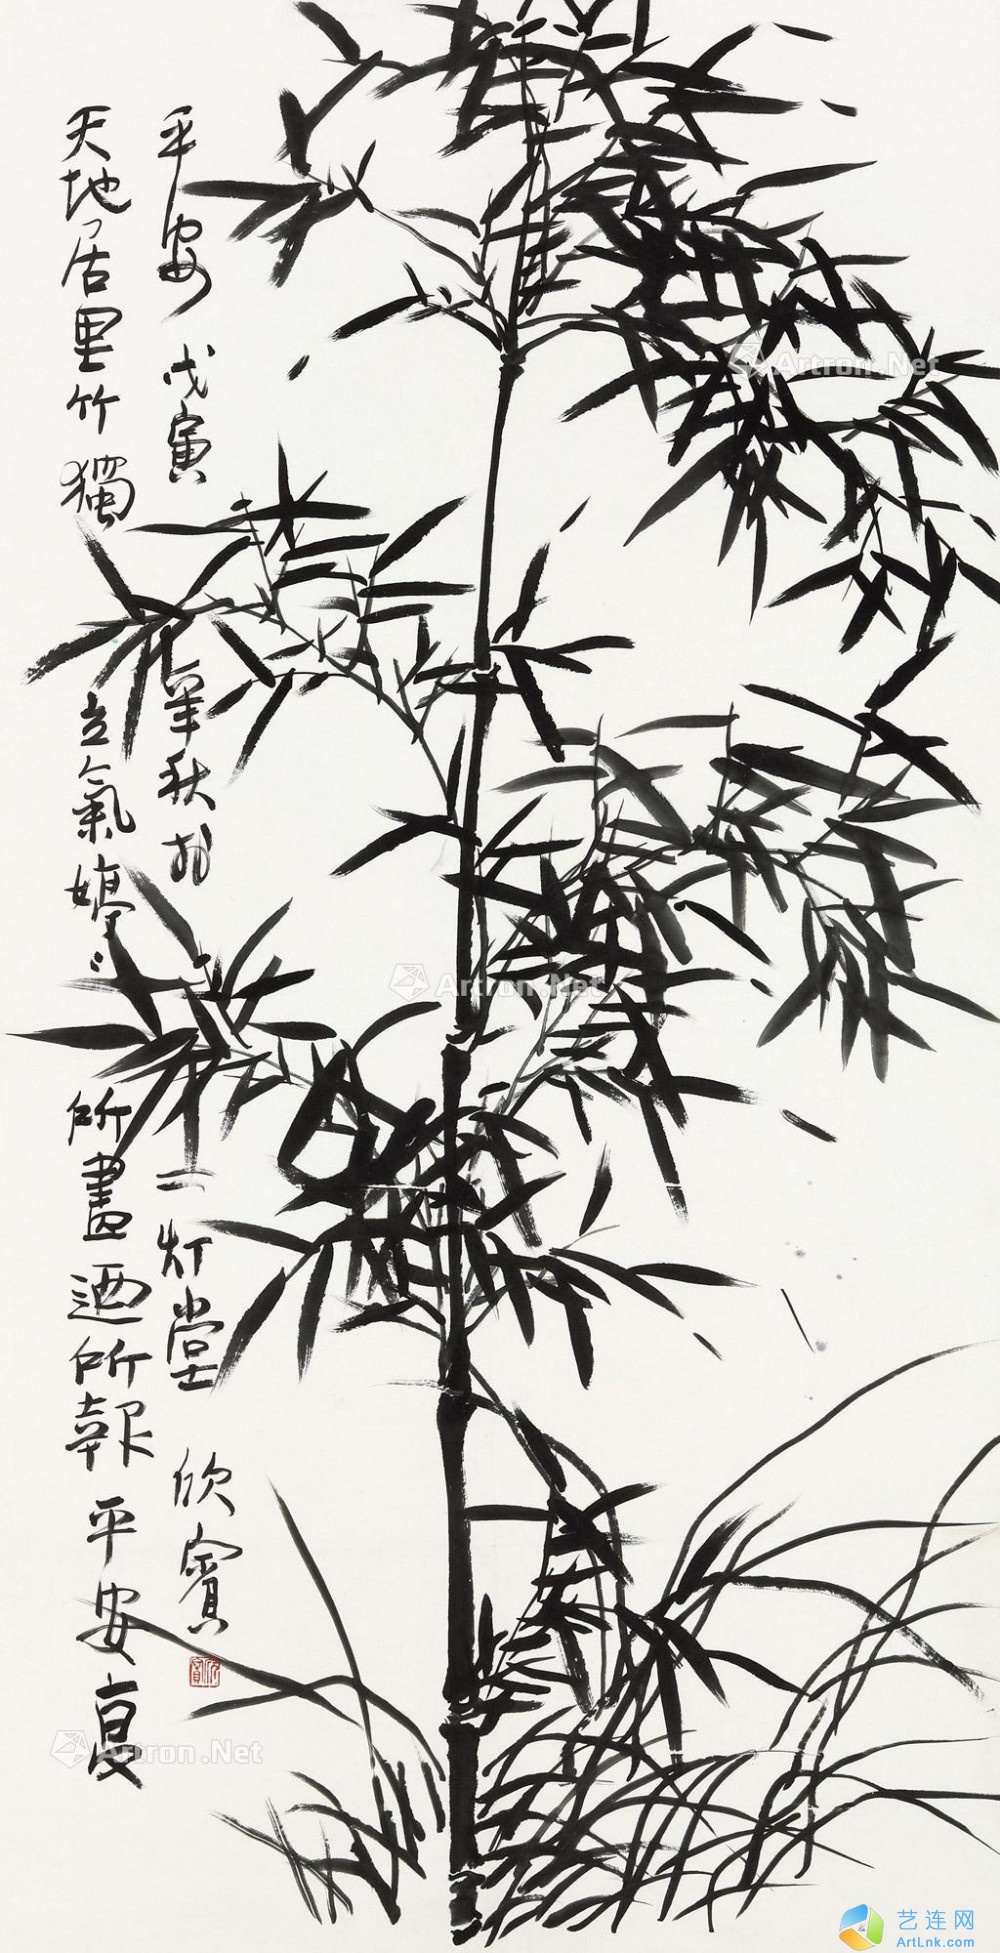 天地居里竹獨立氣婷〻所畫迺所報平安夏
平安 戊寅年秋於二灯堂 欣賓
Artron.Net
Artron.Net
Artron.Net
艺连网
ArtLnk.com